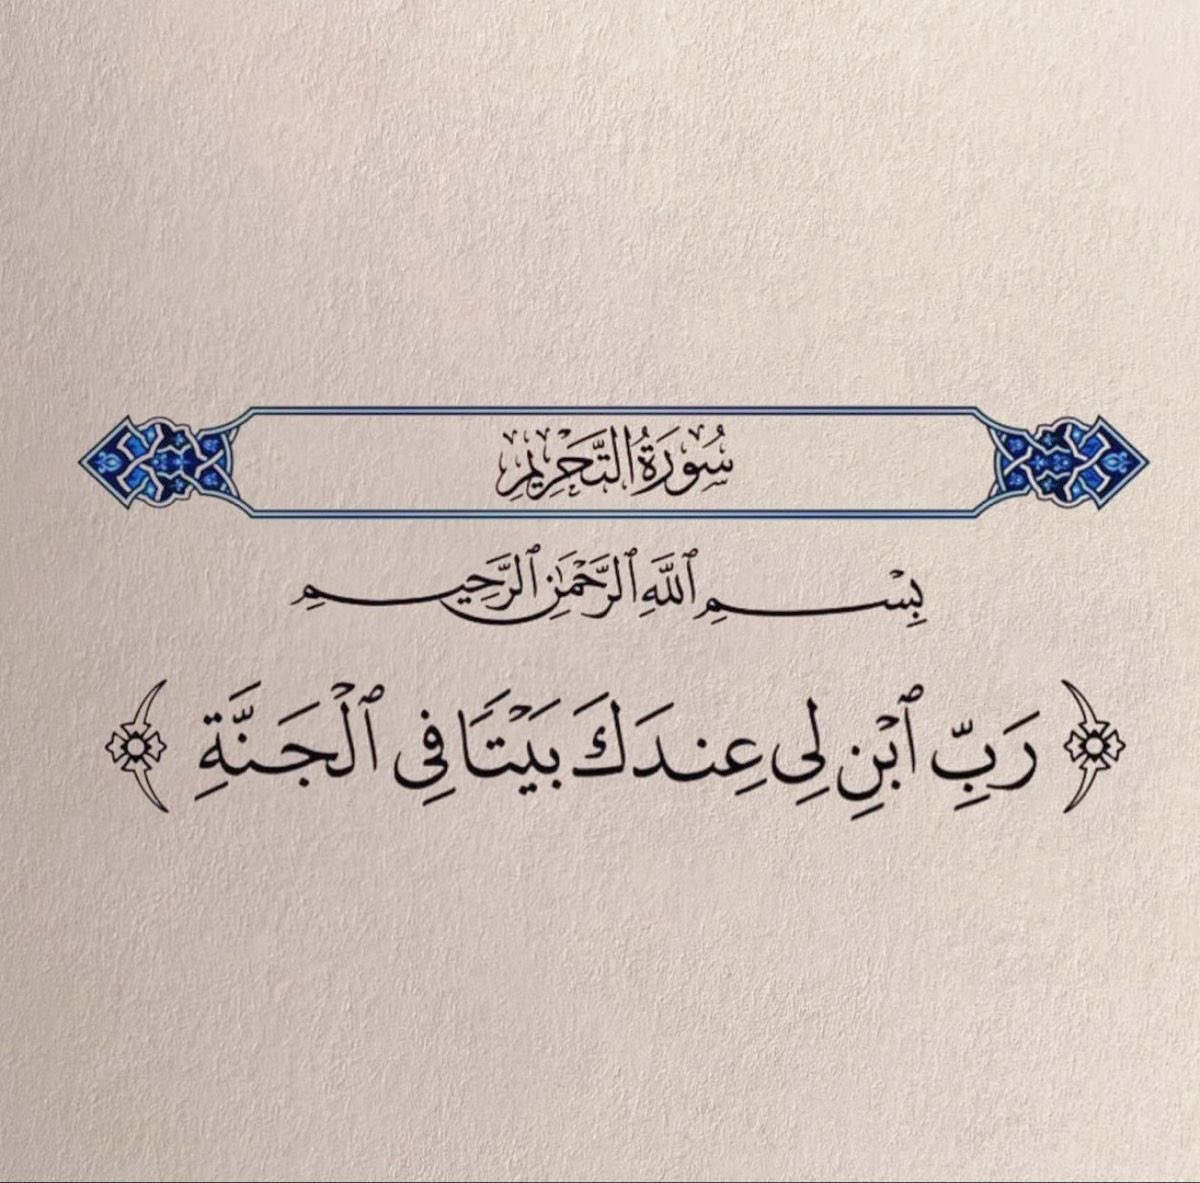 سُورَةُ التَّحْرِيمِ
بِسْمِ ٱللَّهِ ٱلرَّحْمَٰنِ ٱلرَّحِيمِ
﴿ رَبِّ ٱبْنِ لِى عِندَكَ بَيْتًا فِى ٱلْجَنَّةِ ﴾